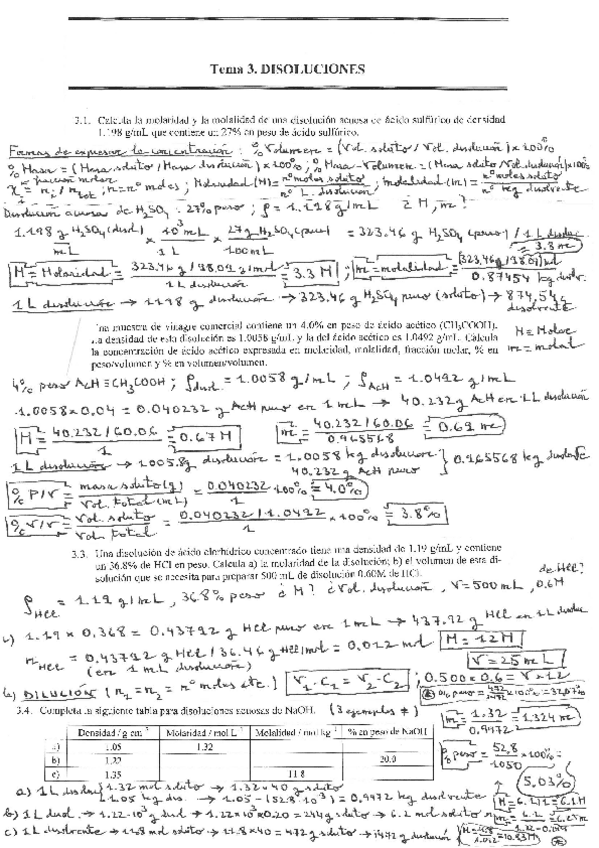 Tema 3. DISOLUCIONES
3.1. Calcula la molaridad y la molalidad de una disolución acuosa de ácido sulfúrico de densidad
1.198 g/mL que contiene un 27% en peso de ácido sulfúrico.
Formas de expresar la concentración : % Volumen = (Vol. soluto / Vol. disolución) x 100%
% Masa = (Masa soluto / Masa disolución) x 100% ; % Masa - Volumen = (Masa soluto / Vol. disolución) x 100%
fracción molar
χ = ni / ntot ; n = nº moles ; Molaridad (M) = nº moles soluto / nº L. disolución ; molalidad (m) = nº moles soluto / nº kg disolvente
Disolución acuosa de H2SO4 : 27% peso ; ρ = 1.198 g/mL ¿ M, m ?
1.198 g H2SO4 (disol) / mL x 10³ mL / 1 L x 27 g H2SO4 (puro) / 100 mL = 323.46 g H2SO4 (puro) / 1 L disoluc.
M = Molaridad = 323.46 g / 98.09 g/mol / 1 L disolución = 3.3 M ; m = molalidad = (323.46 g / 98.09) mol / 0.87454 kg disolv. = 3.8 m
1 L disolución → 1198 g disolución → 323.46 g H2SO4 puro (soluto) → 874.54 g disolvente
Una muestra de vinagre comercial contiene un 4.0% en peso de ácido acético (CH3COOH).
La densidad de esta disolución es 1.0058 g/mL y la del ácido acético es 1.0492 g/mL. Calcula
la concentración de ácido acético expresada en molaridad, molalidad, fracción molar, % en
peso/volumen y % en volumen/volumen.
M = Molar
m = molal
4% peso AcH ≡ CH3COOH ; ρdisol = 1.0058 g/mL ; ρAcH = 1.0492 g/mL
1.0058 x 0.04 = 0.040232 g AcH puro en 1 mL → 40.232 g AcH en 1 L disolución
M = 40.232 / 60.06 / 1 = 0.67 M
m = 40.232 / 60.06 / 0.965568 = 0.69 m
1 L disolución → 1005.8 g disolución = 1.0058 kg disolución
40.232 g AcH puro } 0.965568 kg disolvte
% P/V = masa soluto (g) / Vol. total (mL) = 0.040232 / 1 · 100% = 4.0%
% V/V = Vol. soluto / Vol. total = 0.040232 / 1.0492 / 1 x 100% = 3.8%
3.3. Una disolución de ácido clorhídrico concentrado tiene una densidad de 1.19 g/mL y contiene
un 36.8% de HCl en peso. Calcula a) la molaridad de la disolución; b) el volumen de esta di-
solución que se necesita para preparar 500 mL de disolución 0.60M de HCl.
de HCl?
ρHCl = 1.19 g/mL , 36.8% peso ¿ M ? ¿ Vol. disolución , V = 500 mL , 0.6 M
1.19 x 0.368 = 0.43792 g HCl puro en 1 mL → 437.92 g HCl en 1 L disoluc
nHCl = 0.43792 g HCl / 36.46 g HCl/mol = 0.012 mol M = 12 M
(en 1 mL disolución)
V = 25 mL
b) DILUCIÓN (n1 = n2 = nº moles etc.) V1 · C1 = V2 · C2 ; 0.500 x 0.6 = V x 12
3.4. Completa la siguiente tabla para disoluciones acuosas de NaOH. (3 ejemplos ≠)
Densidad / g cm⁻³ Molaridad / mol L⁻¹ Molalidad / mol kg⁻¹ % en peso de NaOH
a) 1.05 1.32
b) 1.22 20.0
c) 1.35 11.8
m = 1.32 / 0.9972 = 1.324 m
% peso = 52.8 / 1050 · 100% =
5.03%
a) 1 L disoluc { 1.32 mol soluto → 1.32 x 40 g soluto
1.05 kg dis. → 1.05 - (52.8 · 10⁻³) = 0.9972 kg disolvente
b) 1 L disol. → 1.22 · 10³ g disol → 1.22 x 10³ x 0.20 = 244 g soluto → 6.2 mol soluto
c) 1 L disolvente → 11.8 mol soluto → 11.8 x 40 = 472 g soluto → 1472 g disolución